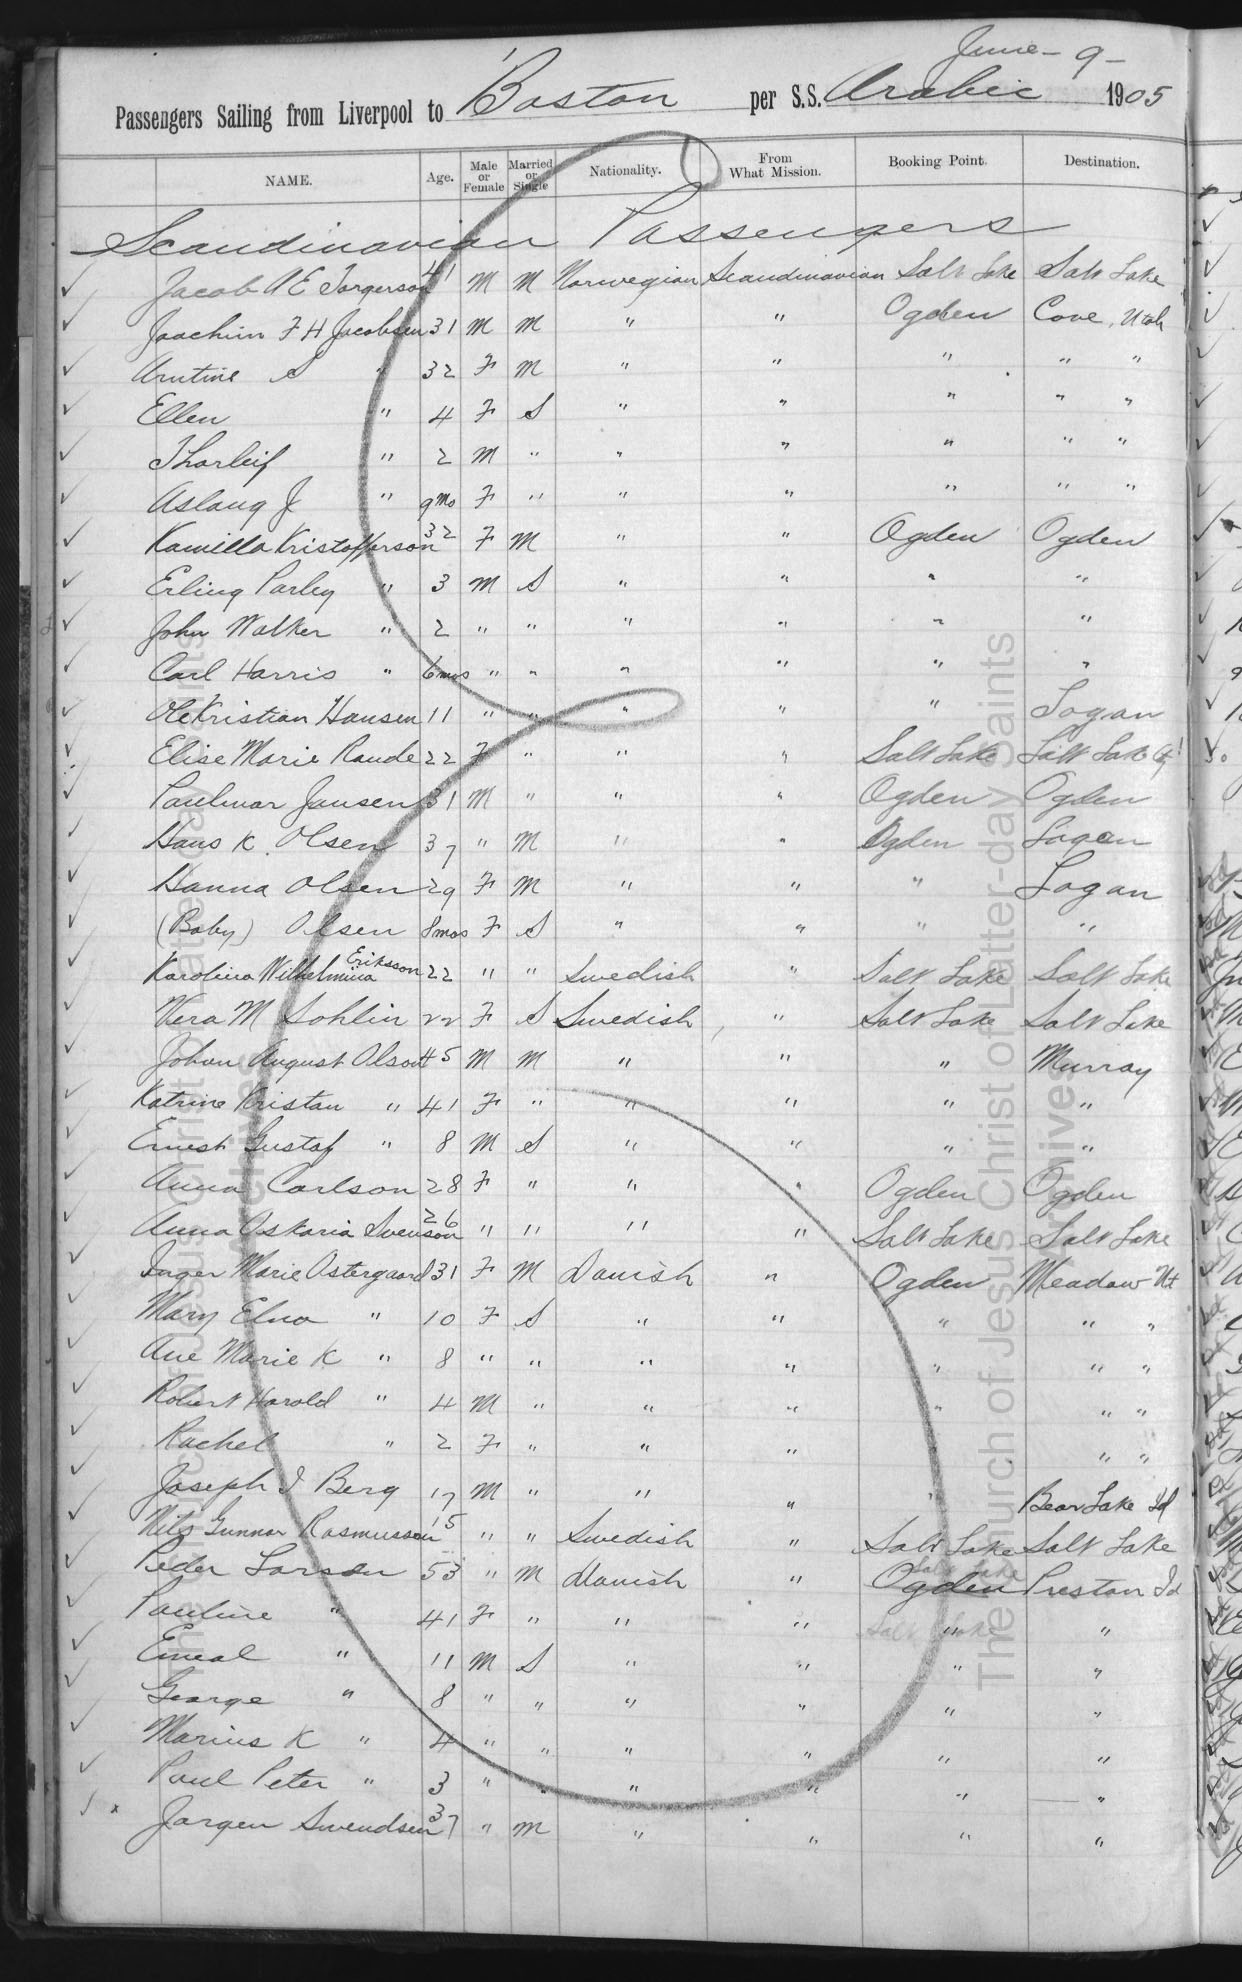 June - 9 -
Passengers Sailing from Liverpool to Boston per S.S. Arabic 1905
NAME. Age. Male or Female Married or Single Nationality. From What Mission. Booking Point. Destination.
Scandinavian Passengers
Jacob A E Torgerson 41 M M Norwegian Scandinavian Salt Lake Salt Lake
Joachim F H Jacobsen 31 M M " " Ogden Cove, Utah
Arntine S " 32 F M " " " " "
Ellen " 4 F S " " " " "
Thorleif " 2 M " " " " " "
Aslaug J " 9mo F " " " " " "
Kamilla Kristofferson 32 F M " " Ogden Ogden
Erling Parley " 3 M S " " " "
John Walker " 2 " " " " " "
Carl Harris " 6mos " " " " " "
Ole Kristian Hansen 11 " " " " " Logan
Elise Marie Raude 22 F " " " Salt Lake Salt Lake Cy
Paulmar Jansen 31 M " " " Ogden Ogden
Hans K. Olsen 37 " M " " Ogden Logan
Hanna Olsen 29 F M " " " Logan
(Baby) Olsen 8mos F S " " " "
Karolina Wilhelmina Eriksson 22 " " Swedish " Salt Lake Salt Lake
Vera M Sohlin 22 F S Swedish " Salt Lake Salt Lake
Johan August Olson 45 M M " " " Murray
Katrine Kristan " 41 F " " " " "
Ernest Gustaf " 8 M S " " " "
Anna Carlson 28 F " " " Ogden Ogden
Anna Oskaria Svenson 26 " " " " Salt Lake Salt Lake
Inger Marie Ostergaard 31 F M Danish " Ogden Meadow Ut
Mary Elna " 10 F S " " " " "
Ane Marie K " 8 " " " " " " "
Robert Harold " 4 M " " " " " "
Rachel " 2 F " " " " "
Joseph I Berg 17 M " " " " Bear Lake Id
Nils Gunnar Rasmussen 15 " " Swedish " Salt Lake Salt Lake
Peder Larsen 53 " M Danish " Salt Lake Ogden Preston Id
Pauline " 41 F " " " Salt Lake " "
Emeal " 11 M S " " " "
George " 8 " " " " " "
Marius K " 4 " " " " " "
Paul Peter " 3 " " " " " "
x Jorgen Swendsen 37 " M " " " "
The Church of Jesus Christ of Latter-day Saints
Archives
The Church of Jesus Christ of Latter-day Saints
Archives